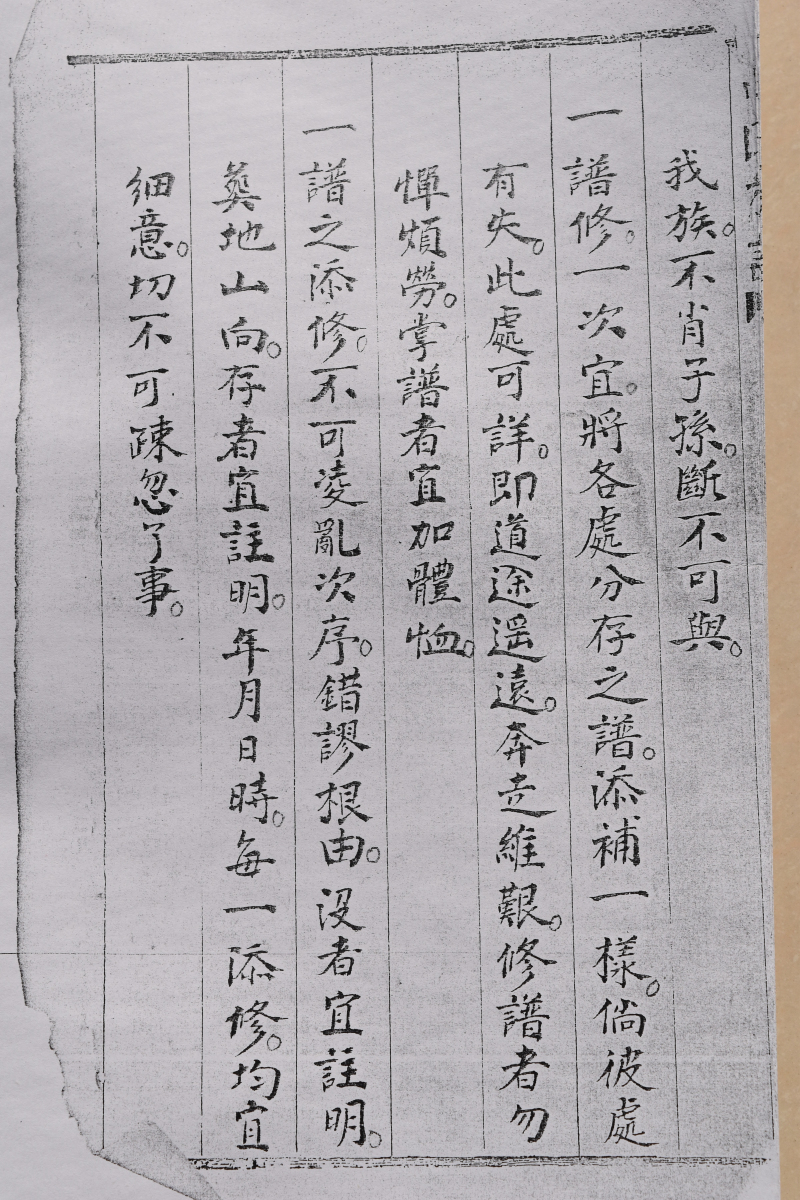 我族。不肖子孫。斷不可與。
一譜修。一次宜。將各處分存之譜。添補一樣。倘彼處
有失。此處可詳。即道途遥遠。奔走維艱。修譜者勿
憚煩勞。掌譜者宜加體恤。
一譜之添修。不可凌亂次序。錯謬根由。没者宜註明。
葬地山向。存者宜註明。年月日時。每一添修。均宜
細意。切不可疎忽了事。